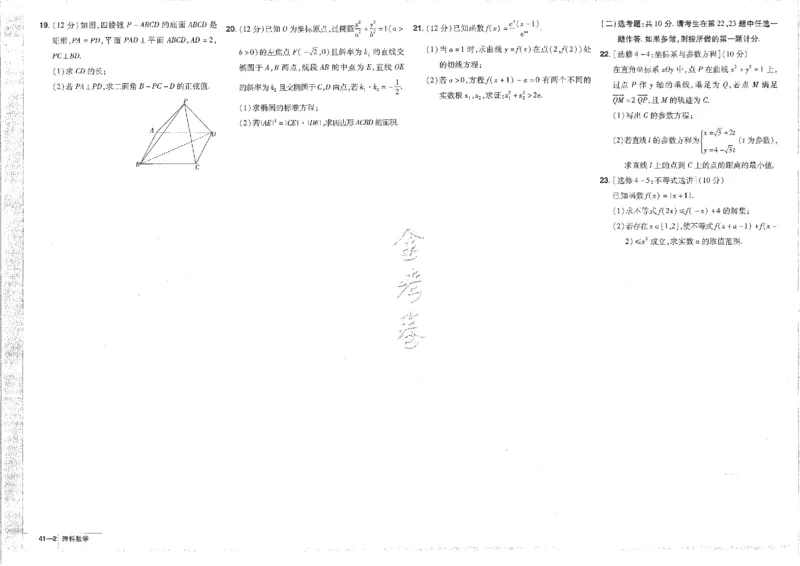 19. (12分)如图,四棱锥 P-ABCD 的底面 ABCD 是
矩形,PA=PD,平面 PAD⊥平面 ABCD,AD=2,
PC⊥BD.
(1)求 CD 的长;
(2)若 PA⊥PD,求二面角 B-PC-D 的正弦值.
P
A
D
B
C
20. (12分)已知 O 为坐标原点,过椭圆 x²/a²+y²/b²=1(a>
b>0)的左焦点 F(-√2,0)且斜率为 k₁ 的直线交
椭圆于 A,B 两点,线段 AB 的中点为 E,直线 OE
的斜率为 k₂ 且交椭圆于 C,D 两点,若 k₁·k₂=-1/2.
(1)求椭圆的标准方程;
(2)若|AE|²=|CE|·|DE|,求四边形 ACBD 的面积.
21. (12分)已知函数 f(x)=eˣ(x-1)/eᵃˣ.
(1)当 a=1 时,求曲线 y=f(x)在点(2,f(2))处
的切线方程;
(2)若 a>0,方程 f(x+1)-a=0 有两个不同的
实数根 x₁,x₂,求证:x₁²+x₂²>2e.
(二)选考题:共10分.请考生在第22、23题中任选一
题作答.如果多做,则按所做的第一题计分.
22. [选修4-4:坐标系与参数方程](10分)
在直角坐标系 xOy 中,点 P 在曲线 x²+y²=1 上,
过点 P 作 y 轴的垂线,垂足为 Q,若点 M 满足
QM=2QP,且 M 的轨迹为 C.
(1)写出 C 的参数方程;
(2)若直线 l 的参数方程为{x=√5+2t y=4-√5t (t 为参数),
求直线 l 上的点到 C 上的点的距离的最小值.
23. [选修4-5:不等式选讲](10分)
已知函数 f(x)=|x+1|.
(1)求不等式 f(2x)≤f(-x)+4 的解集;
(2)若存在 x∈[1,2],使不等式 f(x+a-1)+f(x-
2)≤x² 成立,求实数 a 的取值范围.
金
考
卷
41—2 理科数学